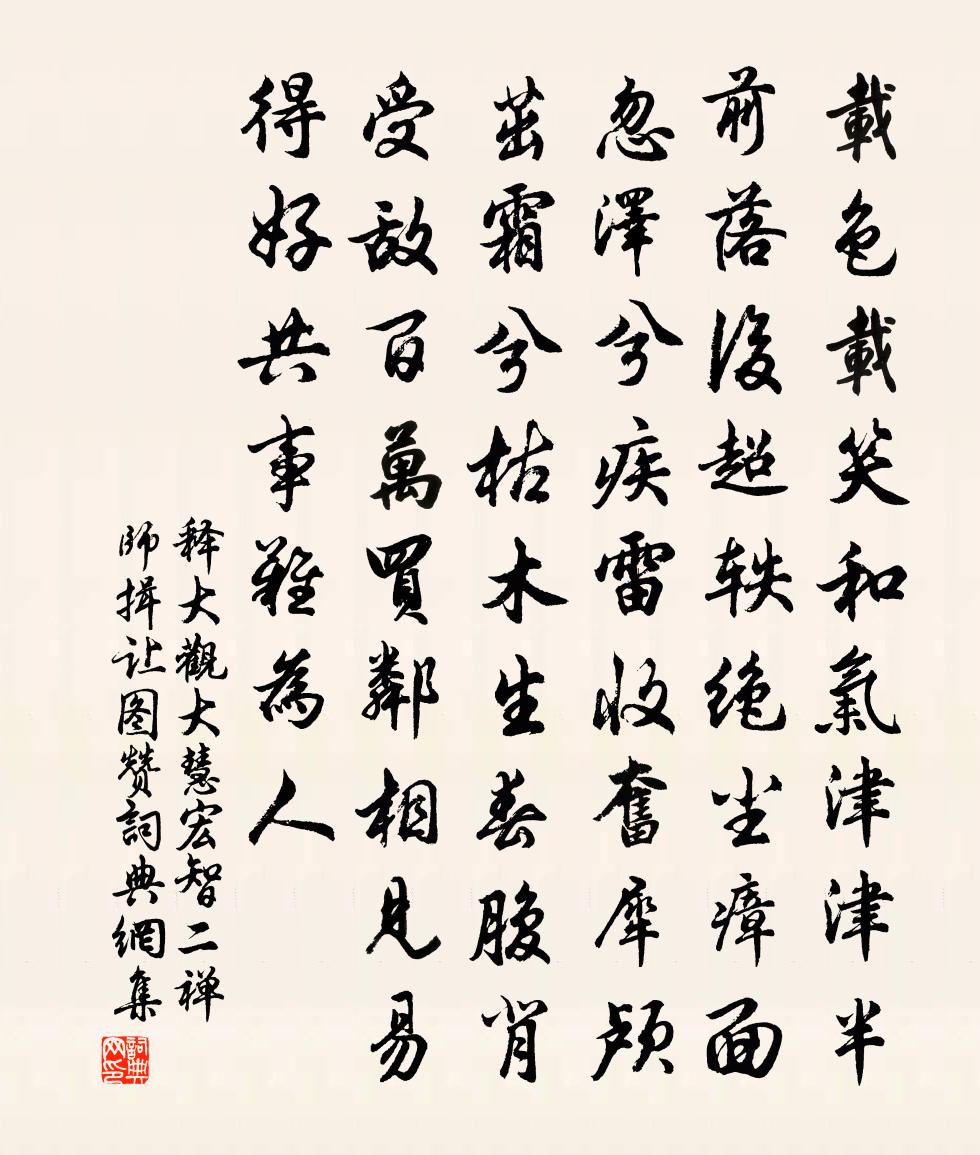 載色載笑和氣津津半
前落後超軼絶塵瘴面
忽澤兮疾雷收奮犀顱
茁霜兮枯木生春腹背
受敵百萬買鄰相見易
得好共事難為人
释大觀大慧宏智二禅
師揖让图赞詞典網集
詞典网印